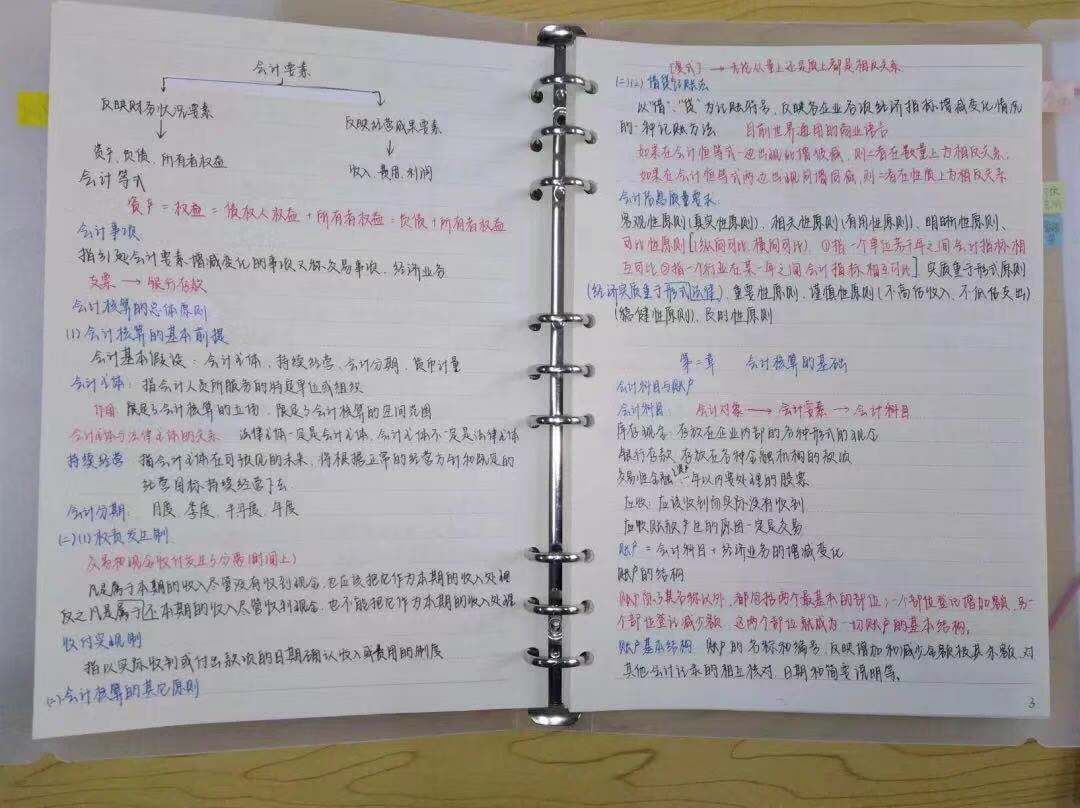 会计要素
反映财务状况要素
反映经营成果要素
资产、负债、所有者权益
收入、费用、利润
会计等式
资产 = 权益 = 债权人权益 + 所有者权益 = 负债 + 所有者权益
会计事项
指引起会计要素增减变化的事项又称交易事项、经济业务
支票 → 银行存款
会计核算的总体原则
(1) 会计核算的基本前提
会计基本假设：会计主体、持续经营、会计分期、货币计量
会计主体：指会计人员所服务的特定单位或组织
作用 限定了会计核算的立场，限定了会计核算的空间范围
会计主体与法律主体的关系 法律主体一定是会计主体，会计主体不一定是法律主体
持续经营 指会计主体在可预见的未来，将根据正常的经营方针和既定的
经营目标持续经营下去
会计分期：月度、季度、半年度、年度
(二)(1) 权责发生制
交易和现金收付发生与分离(时间上)
凡是属于本期的收入尽管没有收到现金，也应该把它作为本期的收入处理
反之凡是属于不本期的收入尽管收到现金，也不能把它作为本期的收入处理
收付实现制
指以实际收到或付出款项的日期确认收入或费用的制度
会计核算的其它原则
→ 无论从量上还是质上都是相反关系
(二)(2) 借贷记账法
以"借"、"贷"为记账符号，反映各企业各项经济指标增减变化情况
的一种记账方法 目前世界通用的商业语言
如果在会计恒等式一边出现的增或减，则二者在数量上方相反关系，
如果在会计恒等式两边出现同增同减，则二者在性质上方相反关系
会计信息质量要求：
客观性原则(真实性原则)、相关性原则(有用性原则)、明晰性原则、
可比性原则[纵向可比、横向可比)，①指一个单位若干年之间会计指标相
互可比②指一个行业在某一年之间会计指标相互可比] 实质重于形式原则
(经济实质重于形式法律)、重要性原则、谨慎性原则(不高估收入、不低估支出)
(稳健性原则)、及时性原则
第二章 会计核算的基础
会计科目与账户
会计科目：会计对象 → 会计要素 → 会计科目
库存现金：存放在企业内部的各种形式的现金
银行存款 存放在各种金融机构的款项
交易性金融资产 一年以内要处理的股票
应收：应该收到而实际没有收到
应收账款产生的原因一定是交易
账户 = 会计科目 + 经济业务的增减变化
账户的结构
账户除了其名称以外，都包括两个最基本的部位；一个部位登记增加额，另一
个部位登记减少额，这两个部位就成为一切账户的基本结构。
账户基本结构 账户的名称和编号，反映增加和减少金额极其余额，对
其他会计记录的相互核对、日期和简要说明等。
3